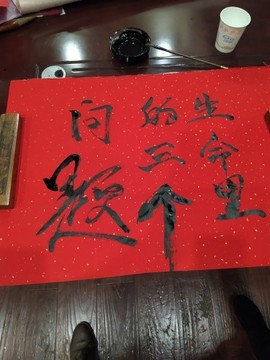 生命里
的三个
问题